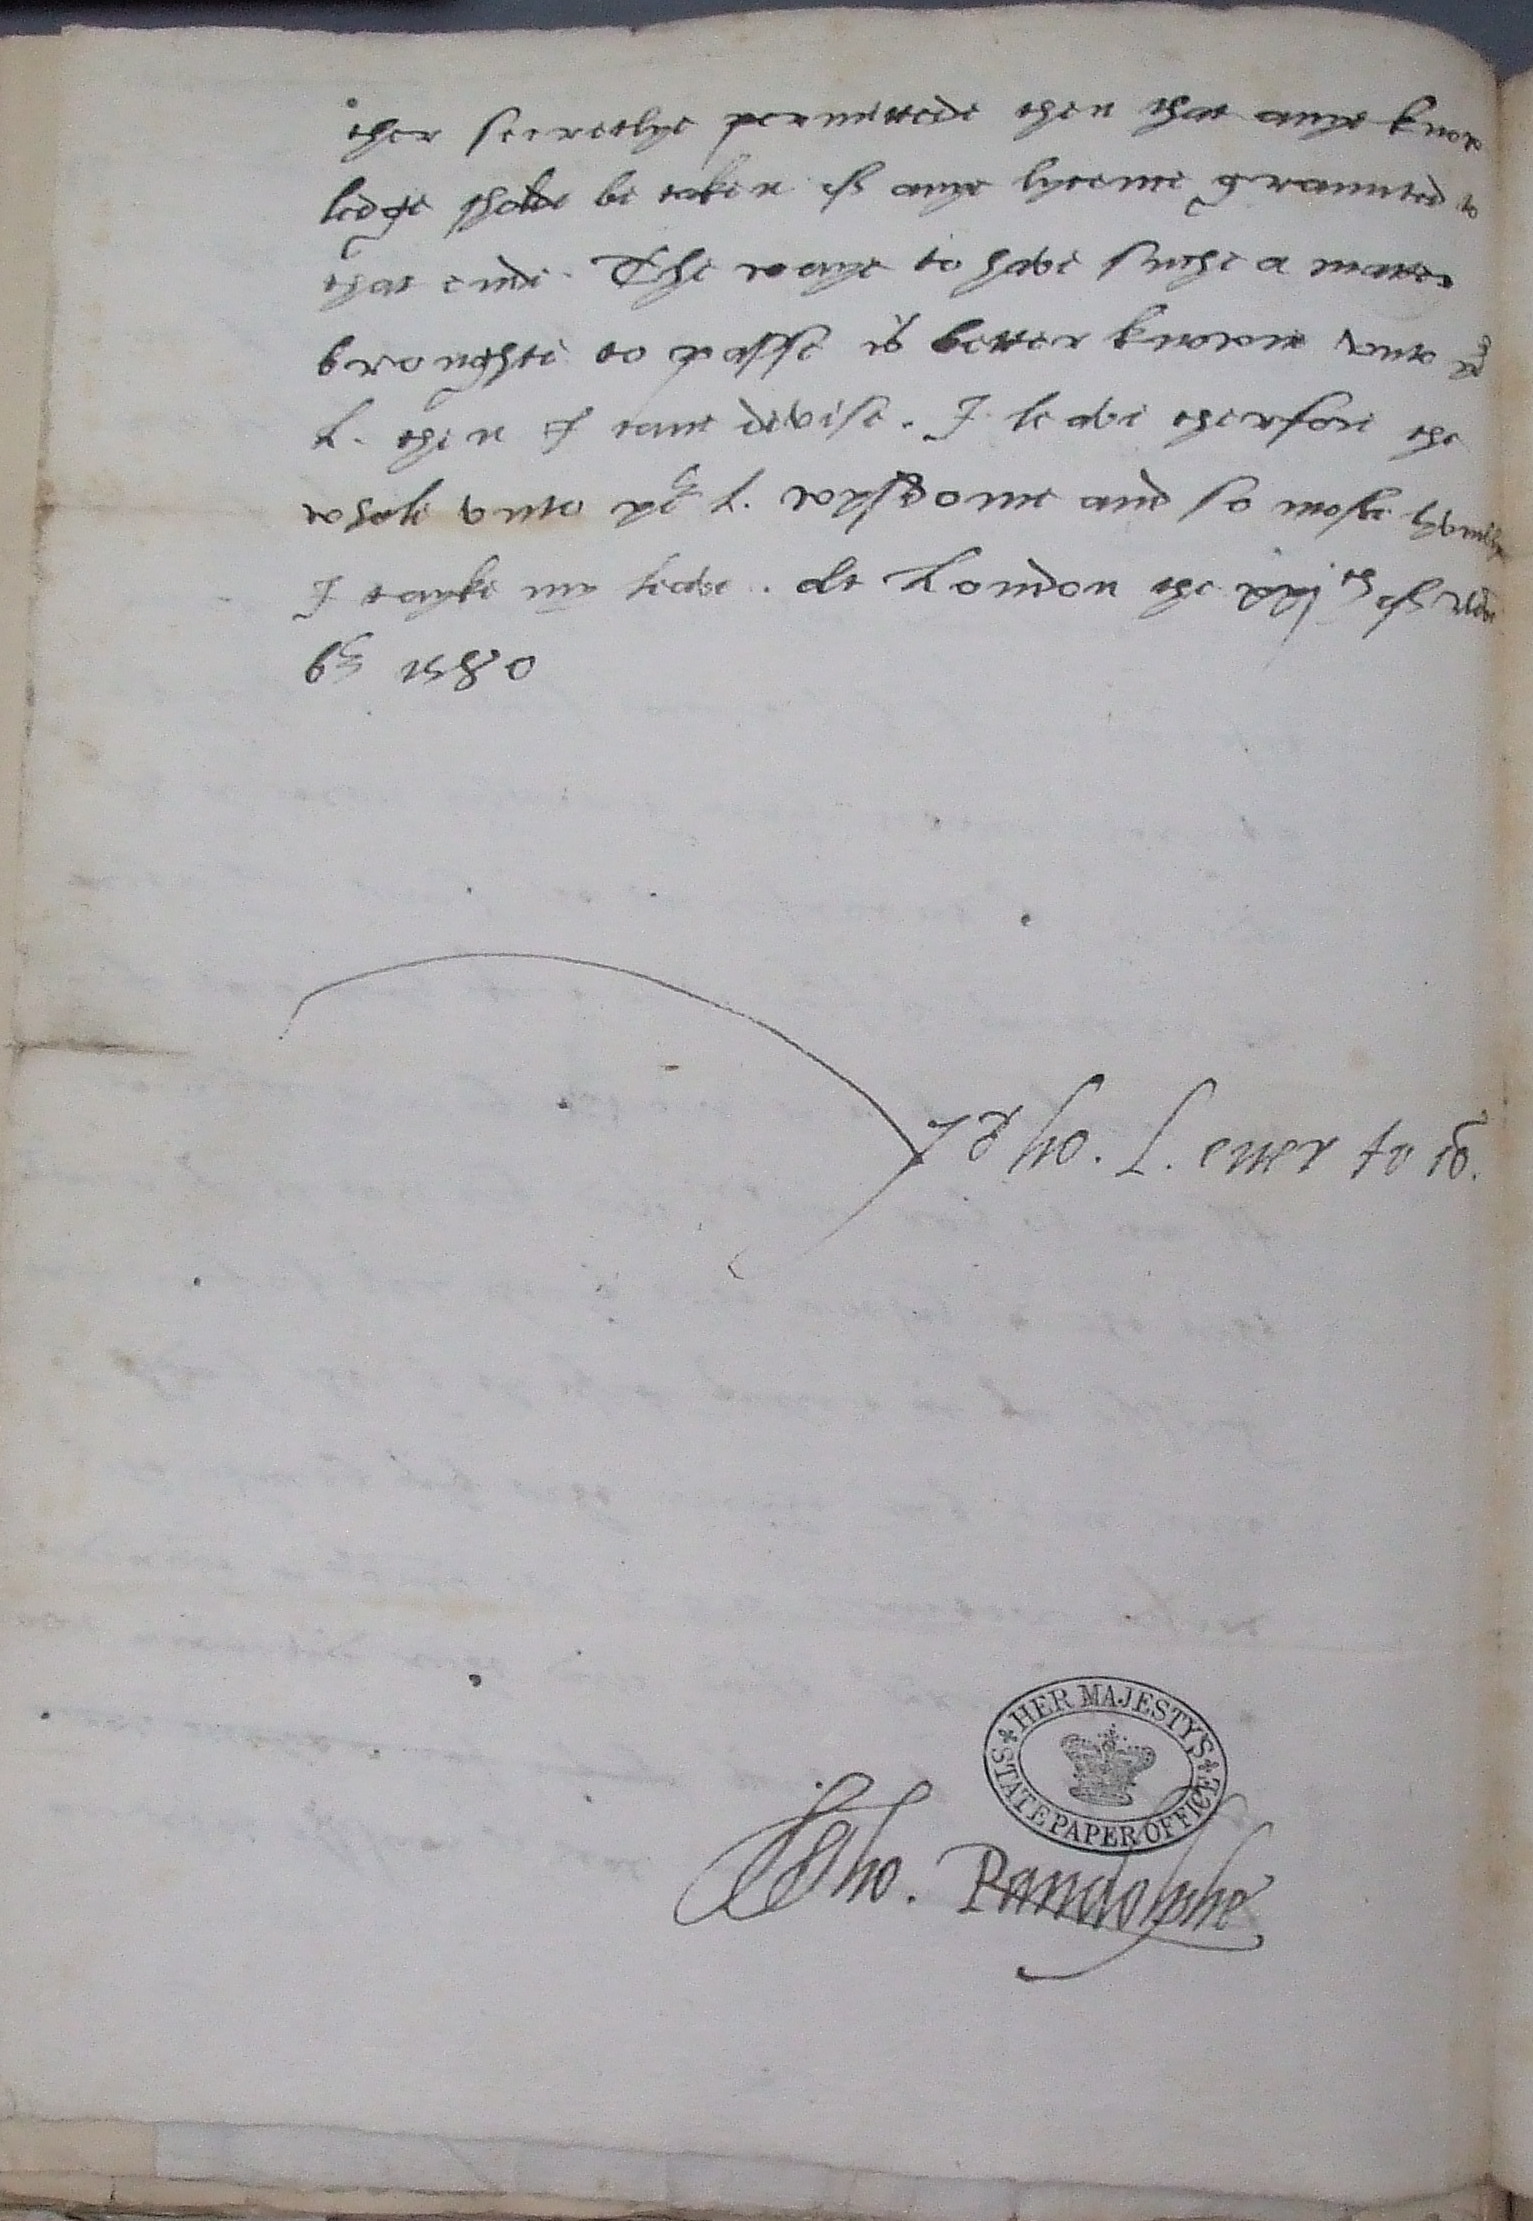 ther secretlye permittede then that anye know
ledge sholde be taken of anye lycence graunted to
that ende. The waye to have suche a matter
broughte to passe is better knowne unto yor
L. then I cane devise. I leave therfore the
whole unto yor L. wysdome and so moste humblye
I tayke my leave. At London the xxjth of Novem
ber 1580
Yor ho. L. ever to co.
Tho. Randolphe
HER MAJESTY'S STATE PAPER OFFICE